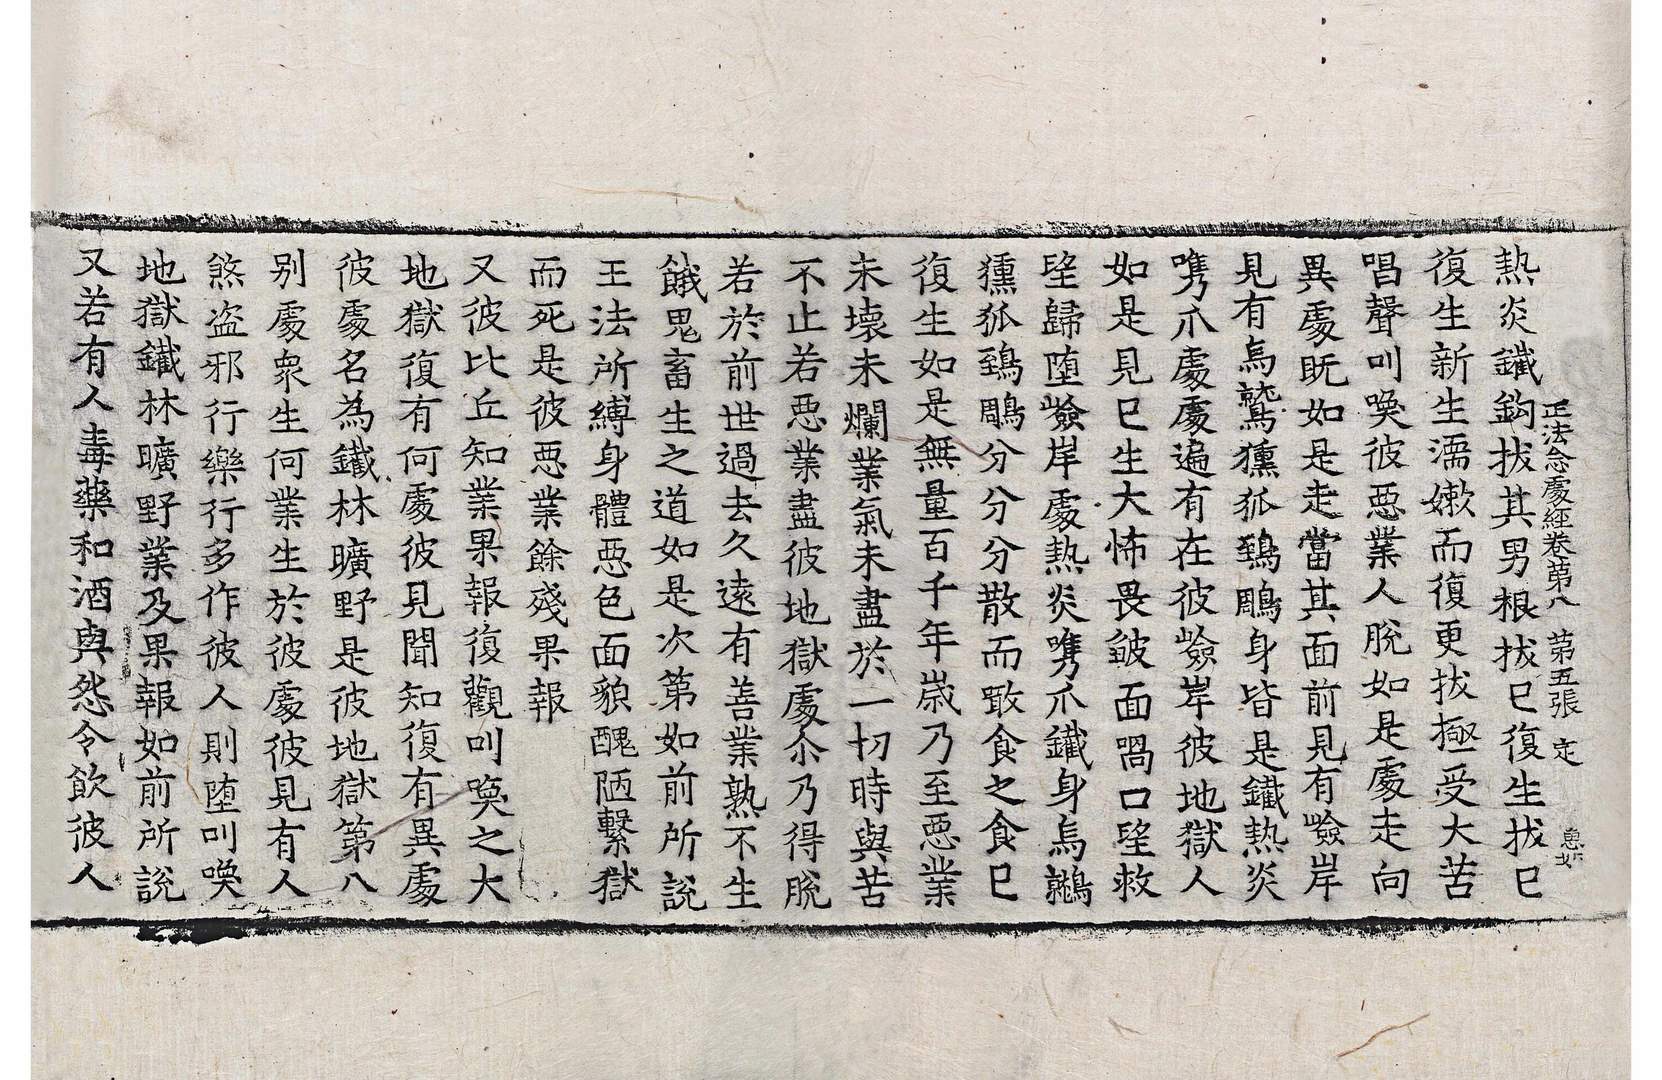 正法念處經卷第八　第五張　定
熱炎鐵鉤拔其男根拔已復生拔已
復生新生濡嫩而復更拔極受大苦
唱聲叫喚彼惡業人脫如是處走向
異處既如是走當其面前見有嶮岸
見有烏鷲獯狐鵄鵰身皆是鐵熱炎
嘴爪處處遍有在彼嶮岸彼地獄人
如是見已生大怖畏皺面喎口望救
望歸墮嶮岸處熱炎嘴爪鐵身烏鷲
獯狐鵄鵰分分分散而噉食之食已
復生如是無量百千年歲乃至惡業
未壞未爛業氣未盡於一切時與苦
不止若惡業盡彼地獄處尒乃得脫
若於前世過去久遠有善業熟不生
餓鬼畜生之道如是次第如前所說
王法所縛身體惡色面貌醜陋繫獄
而死是彼惡業餘殘果報
又彼比丘知業果報復觀叫喚之大
地獄復有何處彼見聞知復有異處
彼處名為鐵林曠野是彼地獄第八
別處眾生何業生於彼處彼見有人
煞盜邪行樂行多作彼人則墮叫喚
地獄鐵林曠野業及果報如前所說
又若有人毒藥和酒與怨令飲彼人